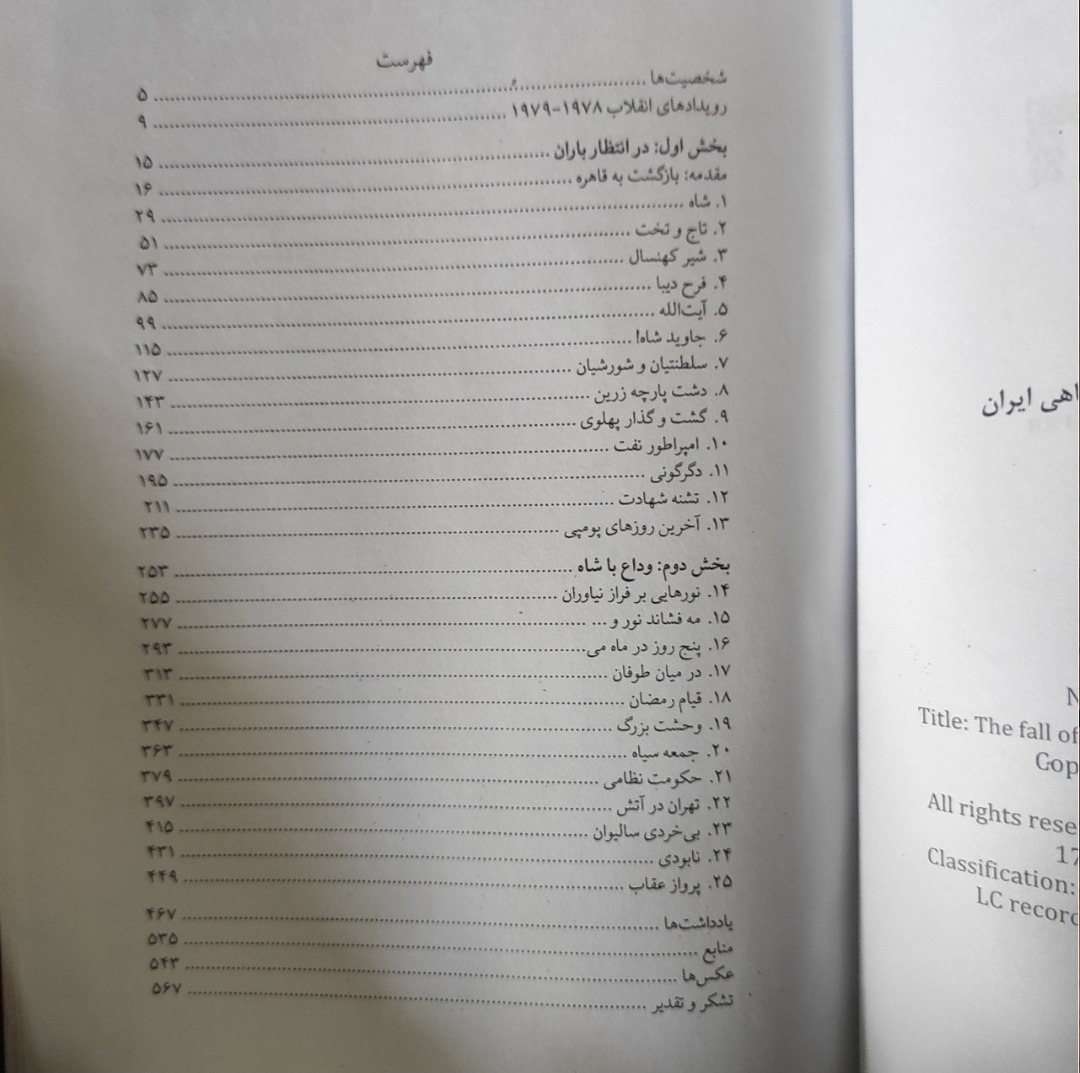 فهرست
شخصیت‌ها ........ ۵
رویدادهای انقلاب ۱۹۷۸-۱۹۷۹ ........ ۹
بخش اول: در انتظار باران ........ ۱۵
مقدمه: بازگشت به قاهره ........ ۱۶
۱. شاه ........ ۲۹
۲. تاج و تخت ........ ۵۱
۳. شیر کهنسال ........ ۷۳
۴. فرح دیبا ........ ۸۵
۵. آیت‌الله ........ ۹۹
۶. جاوید شاه! ........ ۱۱۵
۷. سلطنتیان و شورشیان ........ ۱۲۷
۸. دشت پارچه زرین ........ ۱۴۳
۹. گشت و گذار پهلوی ........ ۱۶۱
۱۰. امپراطور نفت ........ ۱۷۷
۱۱. دگرگونی ........ ۱۹۵
۱۲. تشنه شهادت ........ ۲۱۱
۱۳. آخرین روزهای پومپی ........ ۲۳۵
بخش دوم: وداع با شاه ........ ۲۵۳
۱۴. نورهایی بر فراز نیاوران ........ ۲۵۵
۱۵. مه فشاند نور و ... ........ ۲۷۷
۱۶. پنج روز در ماه می ........ ۲۹۳
۱۷. در میان طوفان ........ ۳۱۳
۱۸. قیام رمضان ........ ۳۳۱
۱۹. وحشت بزرگ ........ ۳۴۷
۲۰. جمعه سیاه ........ ۳۶۳
۲۱. حکومت نظامی ........ ۳۷۹
۲۲. تهران در آتش ........ ۳۹۷
۲۳. بی‌خردی سالیوان ........ ۴۱۵
۲۴. نابودی ........ ۴۳۱
۲۵. پرواز عقاب ........ ۴۴۹
یادداشت‌ها ........ ۴۶۷
منابع ........ ۵۳۵
عکس‌ها ........ ۵۴۳
تشکر و تقدیر ........ ۵۶۷
اهی ایران
N
Title: The fall of
Gop
All rights rese
17
Classification:
LC record